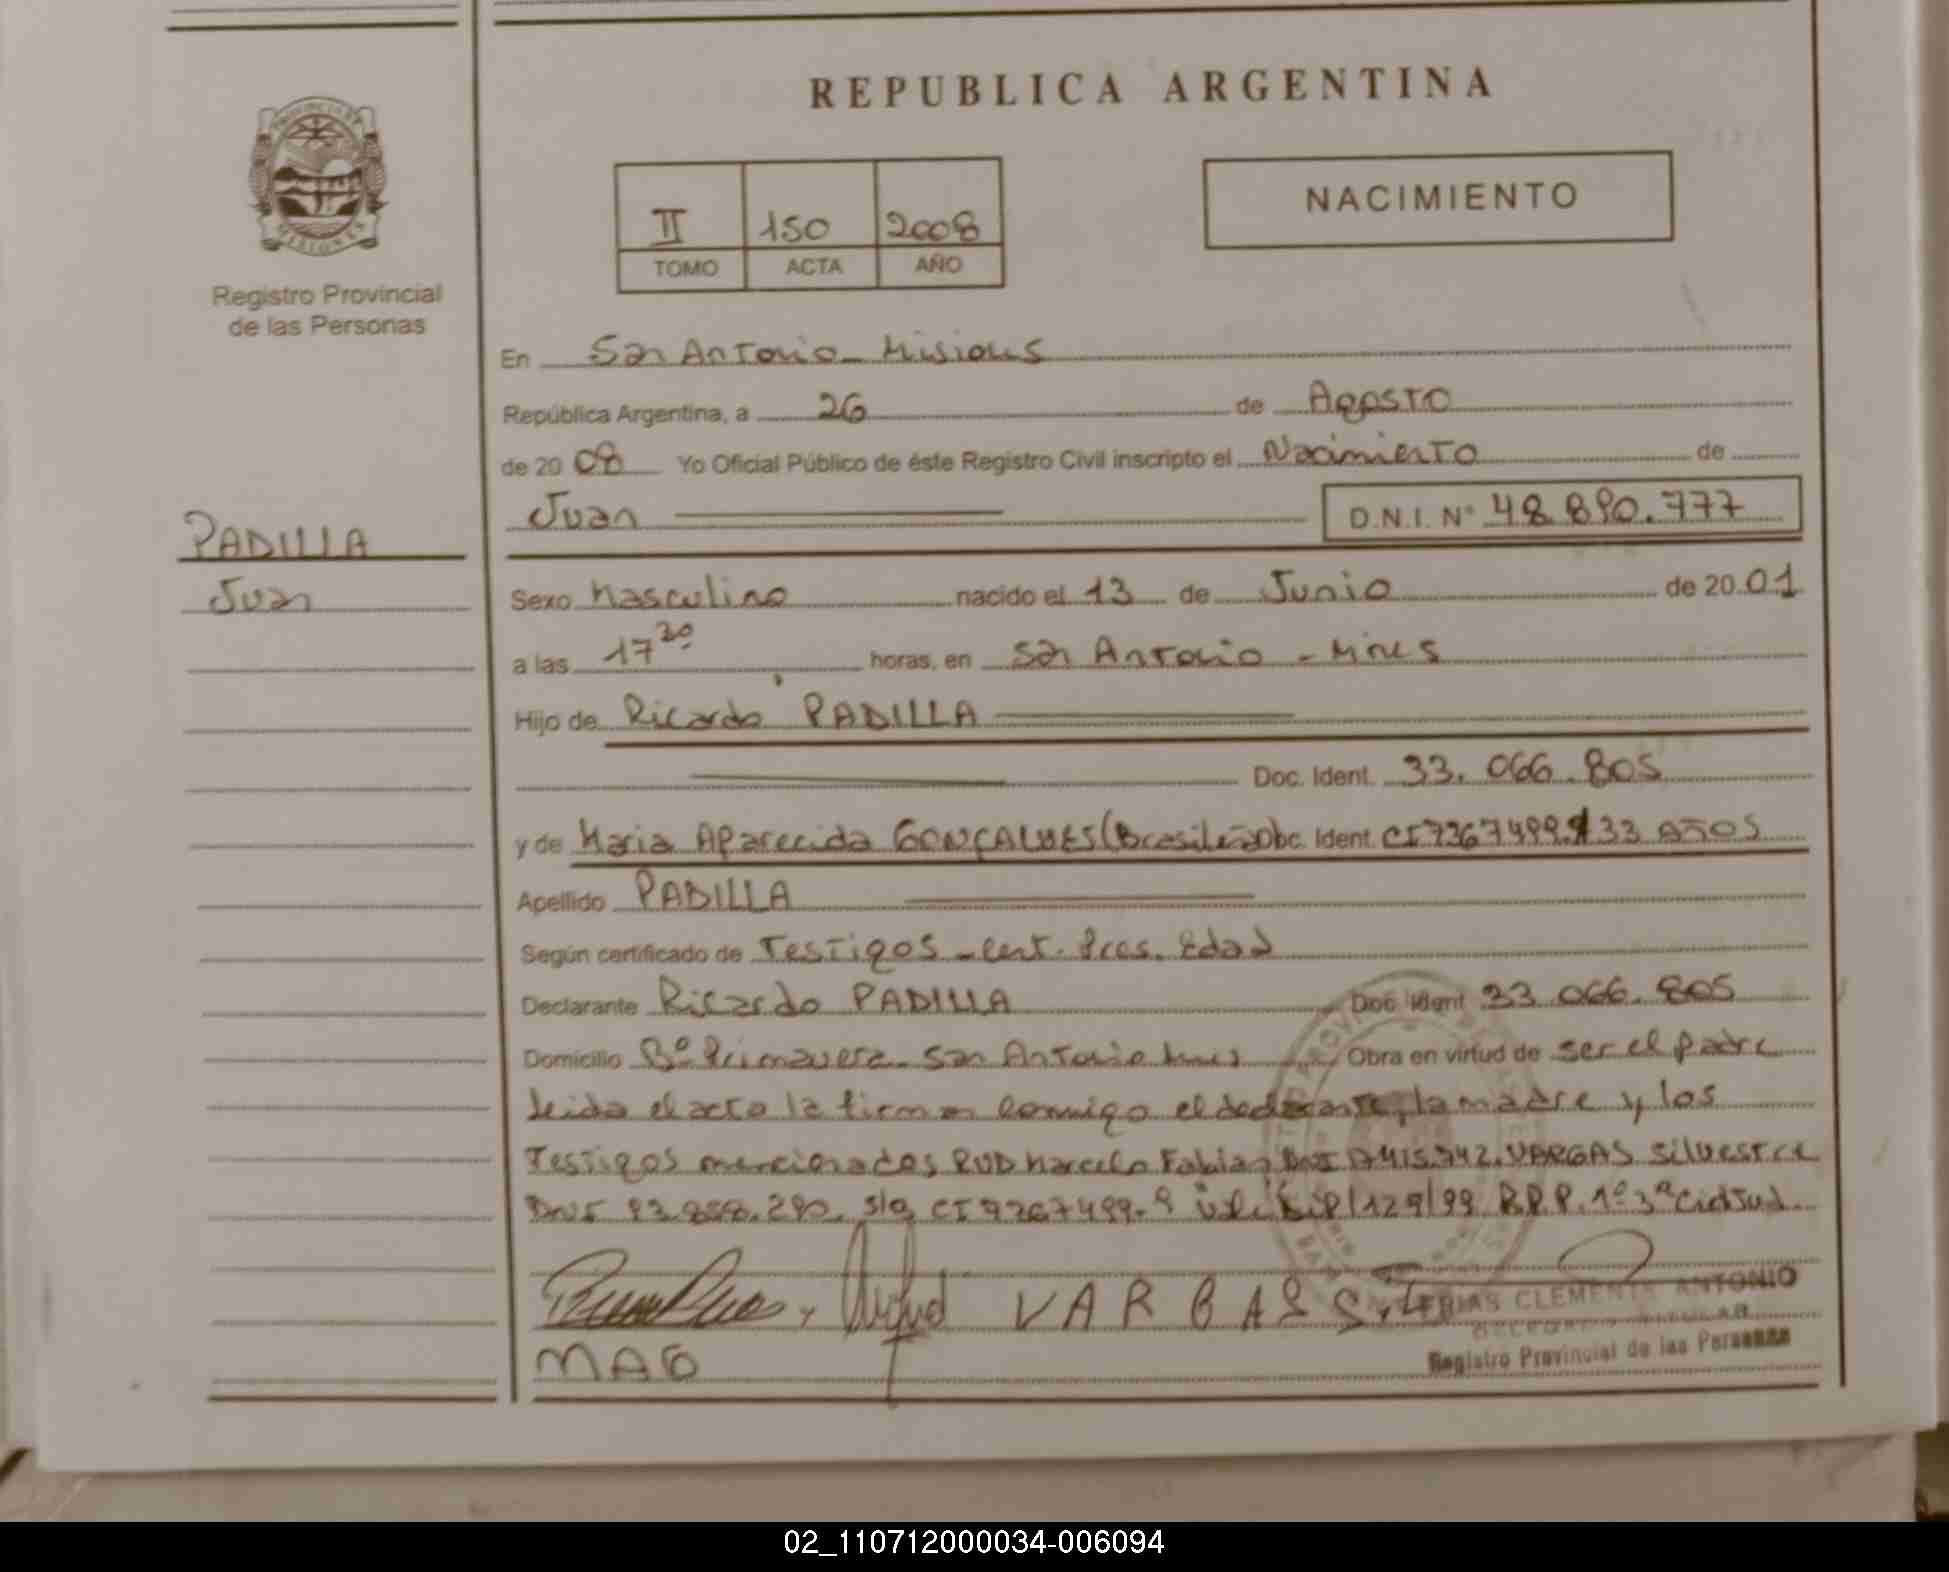 REPUBLICA ARGENTINA
PROVINCIA DE
MISIONES
Registro Provincial
de las Personas
II 150 2008
TOMO ACTA AÑO
NACIMIENTO
En San Antonio - Misiones
República Argentina, a 26 de Agosto
de 2008 Yo Oficial Público de éste Registro Civil inscripto el Nacimiento de
Juan D.N.I. N° 48.890.777
PADILLA
Juan
Sexo Masculino nacido el 13 de Junio de 2001
a las 17 30 horas, en San Antonio - Mnes
Hijo de Ricardo PADILLA
Doc. Ident. 33.066.805
y de Maria Aparecida GONÇALVES (Brasileña) Doc. Ident. CI 7367499.9 33 AÑOS
Apellido PADILLA
Según certificado de Testigos - cert. Pres. Edad
Declarante Ricardo PADILLA Doc. Ident 33.066.805
Domicilio B° Primavera - San Antonio Mnes Obra en virtud de ser el padre
Leida el acta la firman conmigo el declarante, la madre y los
Testigos mencionados Marcelo Fabian VARGAS Silvestre
VARGAS S
FRIAS CLEMENTE ANTONIO
DELEGADO TITULAR
Registro Provincial de las Personas
MAG
02_110712000034-006094